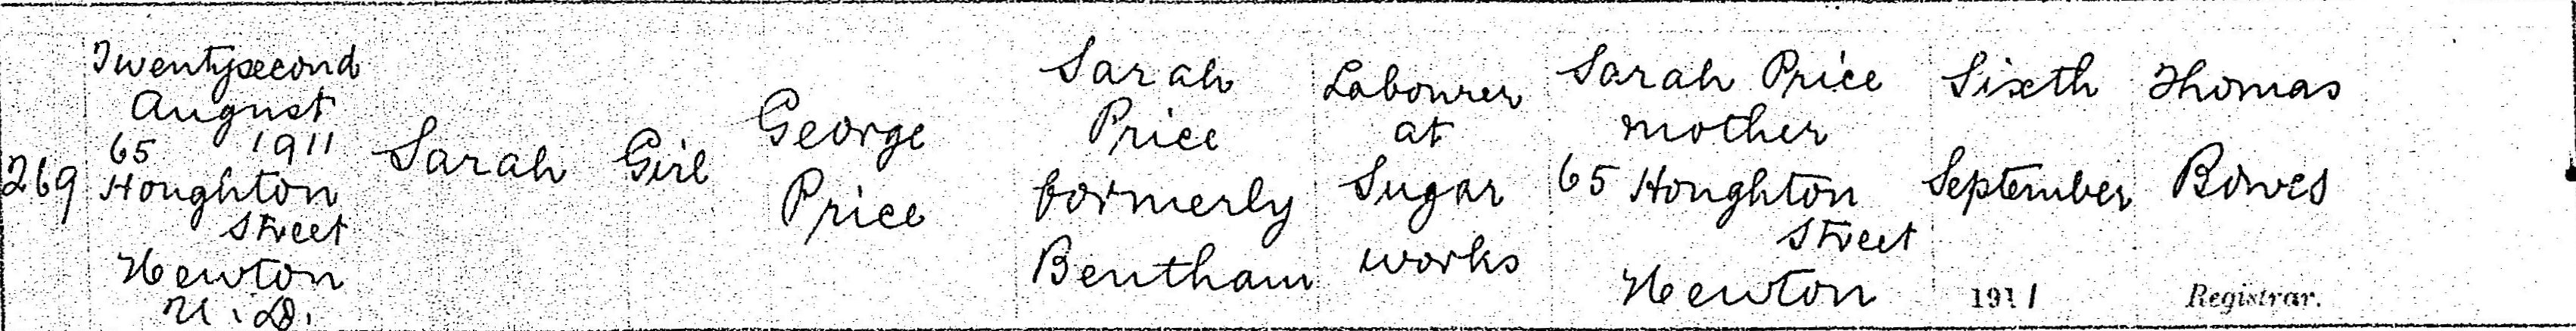 269
Twentysecond
August
65 1911
Houghton
Street
Newton
U.D.
Sarah
Girl
George
Price
Sarah
Price
formerly
Bentham
Labourer
at
Sugar
works
Sarah Price
mother
65 Houghton
Street
Newton
Sixth
September
1911
Thomas
Bowes
Registrar.